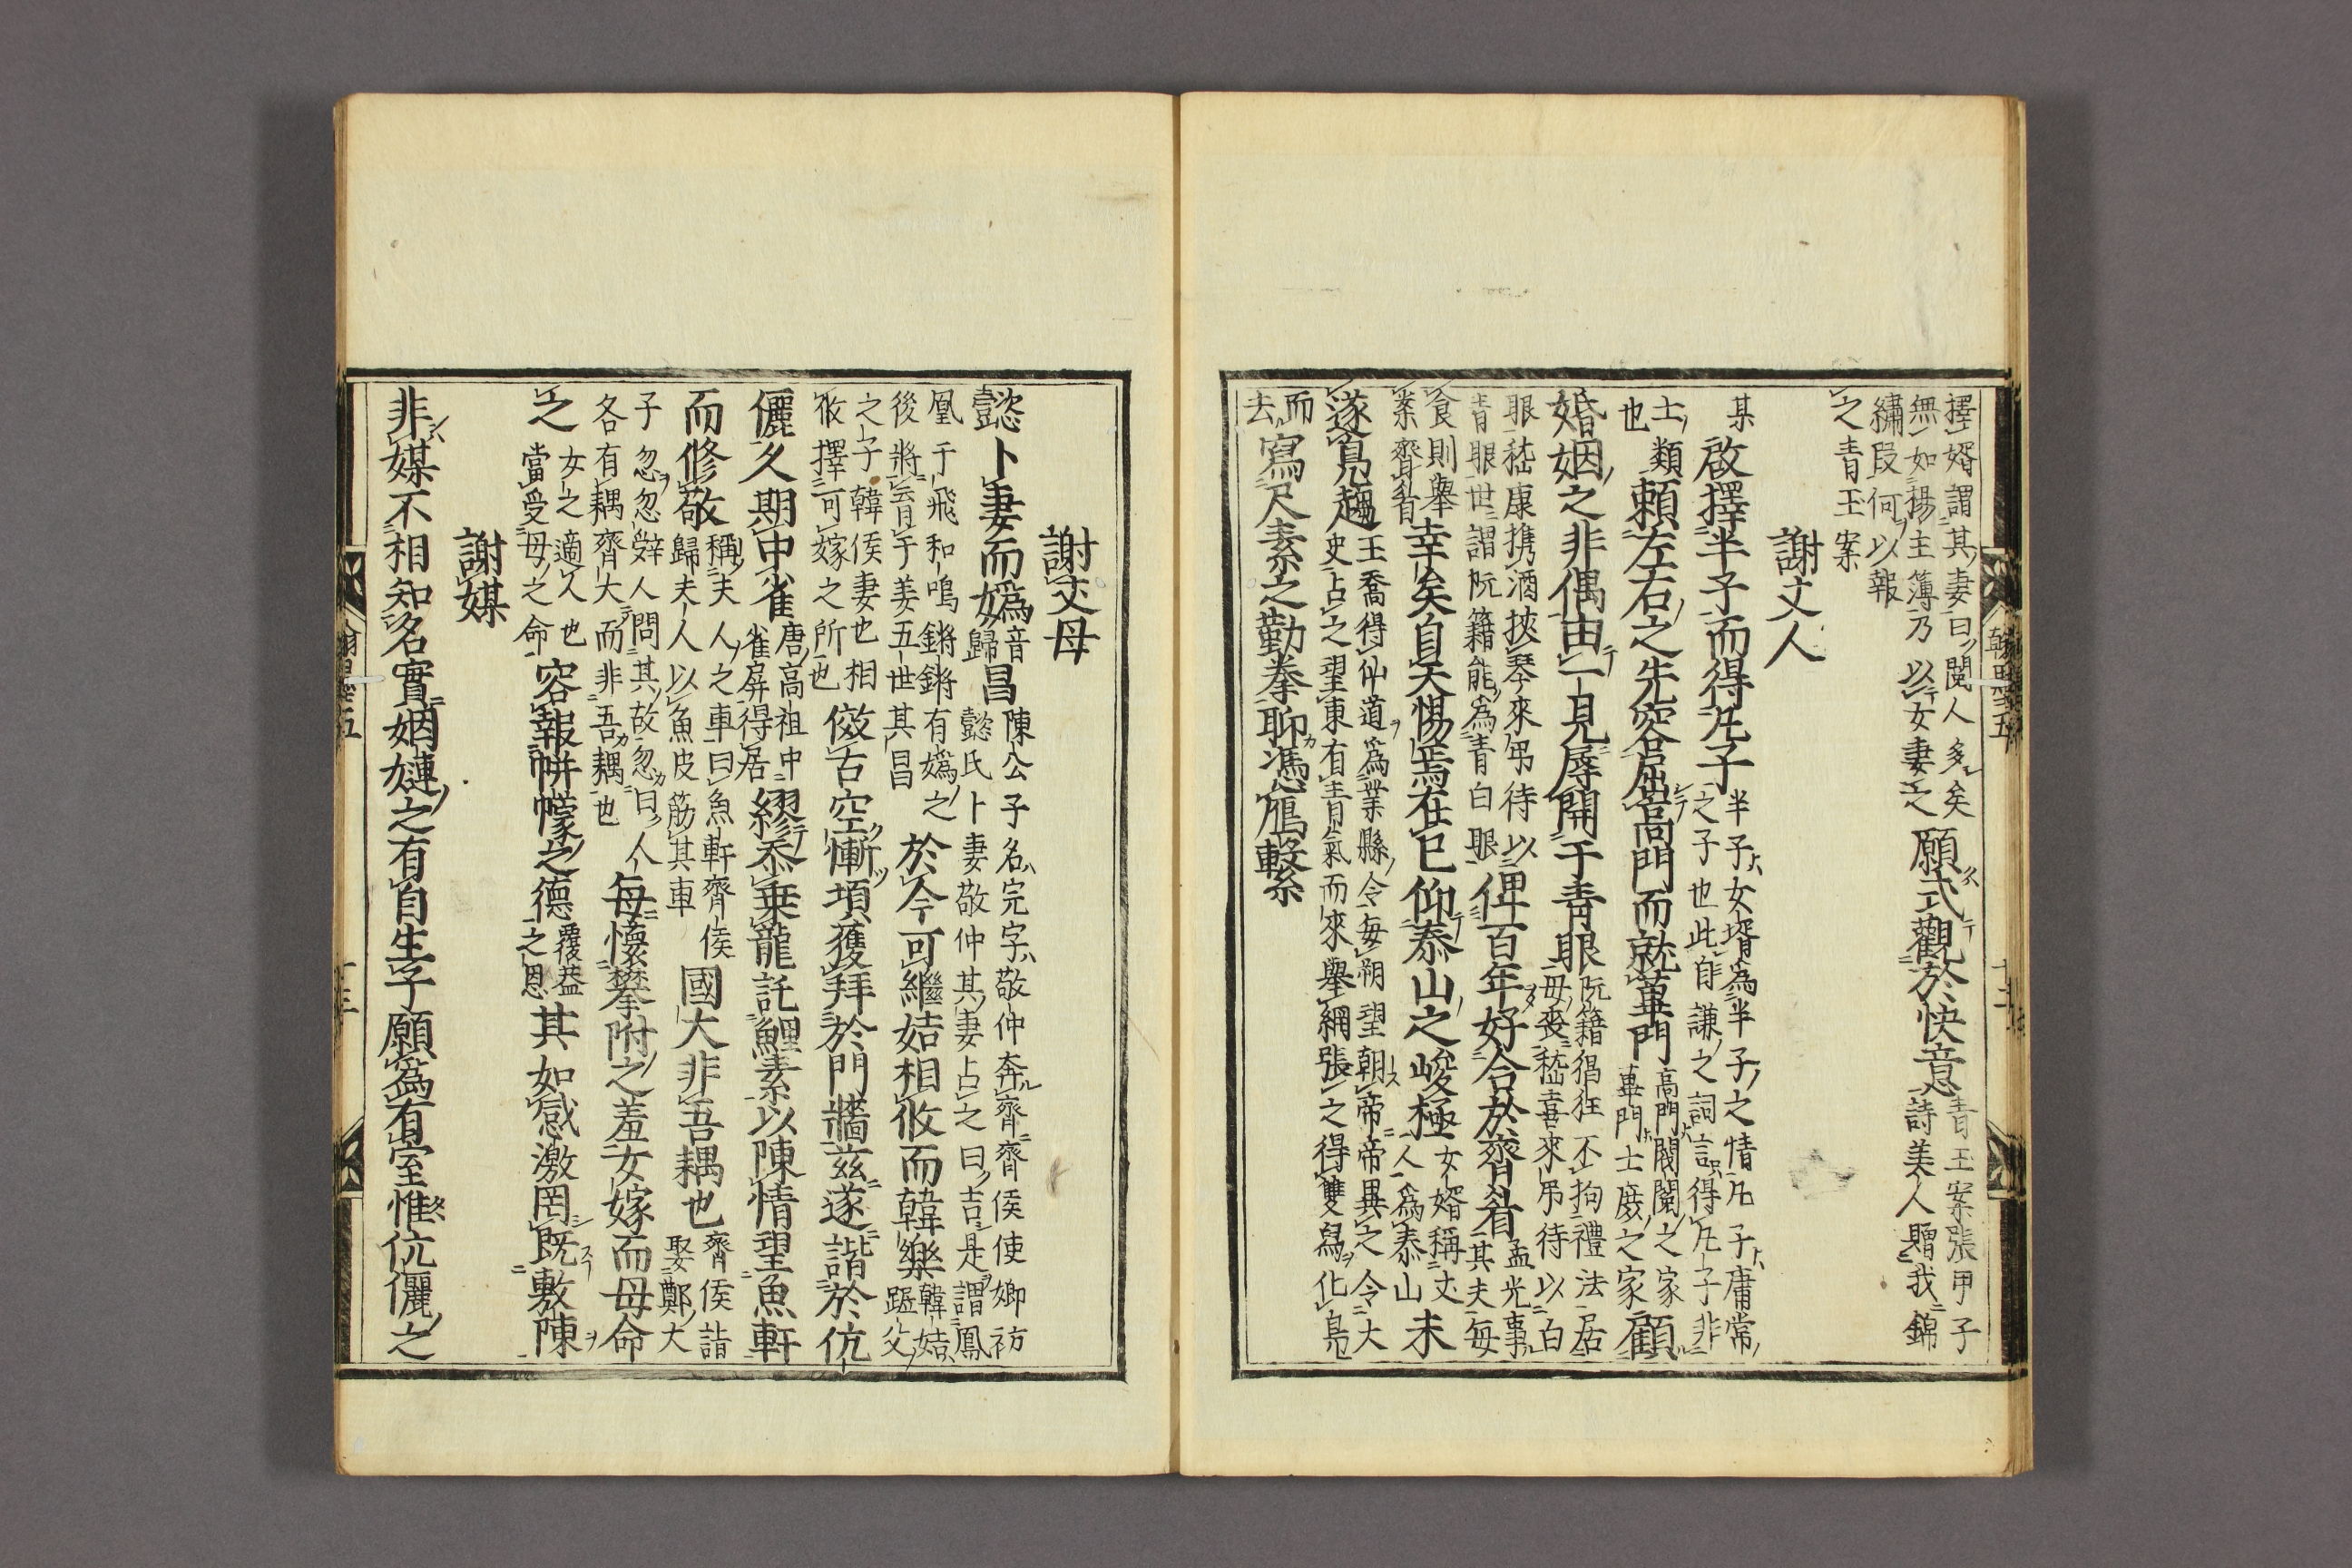 擇婿謂其妻曰閱人多矣
無如楊主簿乃以女妻之
願式觀於快意
青玉案張甲子
詩美人贈我錦
繡段何以報
之青玉案
謝丈人
某啟擇半子而得凡子
半子女壻為半子之情凡子庸常
之子也此自謙之詞言得凡子非
士類
也
賴左右之先容屈高門而就蓽門
高門閥閱之家
蓽門士庶之家
顧
婚姻之非偶由一見辱開于青眼
阮籍猖狂不拘禮法居
母喪嵇喜來吊待以白
眼嵇康携酒挾琴來吊待以
青眼世謂阮籍能為青白眼
俾百年好合於齊眉
孟光事
其夫每
食則舉
案齊眉
幸矣自天惕焉在已仰泰山之峻極
女婿稱丈
人為泰山
未
遂鳧趨
王喬得仙道為葉縣令每朔望朝帝帝異之令太
史占之望東有青氣而來舉網張之得雙舄化鳧
而
去
寫尺素之勤拳聊憑鴈繫
謝丈母
懿卜妻而嬀
音
歸
昌
陳公子名完字敬仲奔齊齊侯使卿
懿氏卜妻敬仲其妻占之曰吉是謂鳳
凰于飛和鳴鏘鏘有嬀之
後將育于姜五世其昌
於今可繼姞相攸而韓樂
韓姞
蹶父
之子韓侯妻也相
攸擇可嫁之所也
傚古空慚頃獲拜於門牆茲遂諧於伉
儷久期中雀
唐高祖中
雀屏得居
繆忝乗龍託鯉素以陳情望魚軒
而修敬
稱夫人之車曰魚軒齊侯
歸夫人以魚皮飾其車
國大非吾耦也
齊侯請
娶鄭大
子忽忽辤人問其故忽曰人
各有耦齊大而非吾耦也
每懷攀附之羞女嫁而母命
之
女之適人也
當受母之命
容報帡幪之德
覆葢
之恩
其如感激罔既敷陳
謝媒
非媒不相知名實姻嫤之有自生子願為有室惟伉儷之